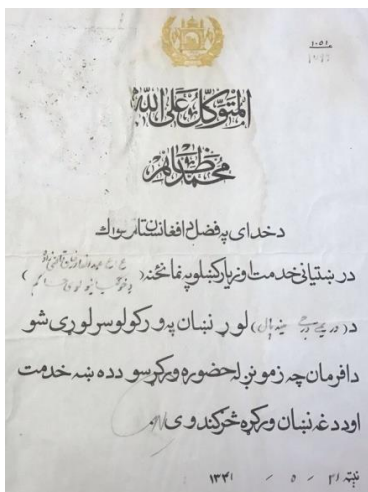 ۱۰۵۱
المتوکل علی الله
محمد ظاهر
د خدای په فضل د افغانستان ټولواک
د رښتیانی خدمت او زیار کښلو په نمانځنه
د (دریمې درجې مینه پال) لوړ نښان په ورکولو سرلوړی شو
دا فرمان چه زمونږ له حضوره ورکړسو دده ښه خدمت
او ددغه نښان ورکړه څرګندوی
نېټه ۲۱ - ۵ - ۱۳۴۱